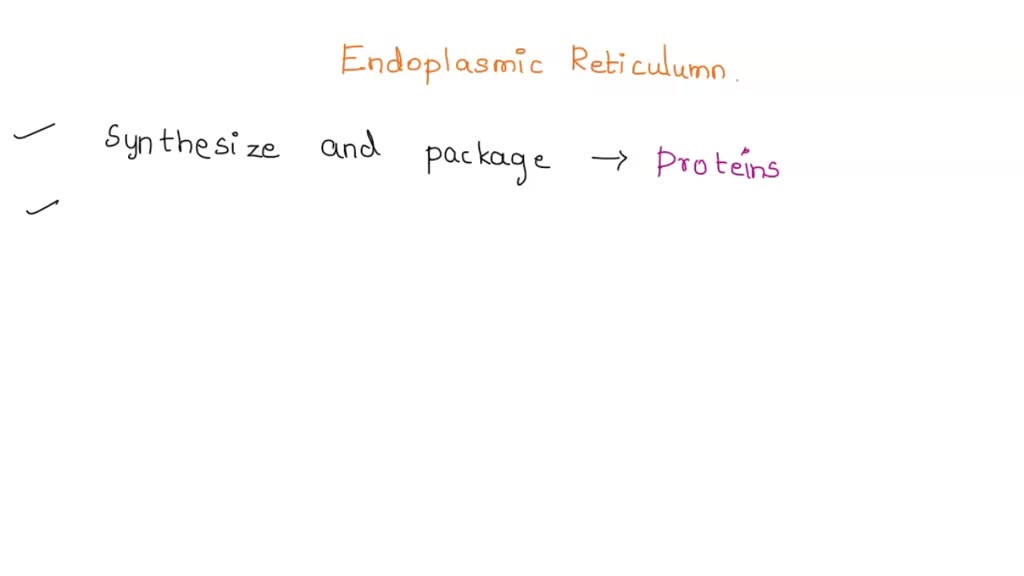 Endoplasmic Reticulumn.
Synthesize and package → Proteins